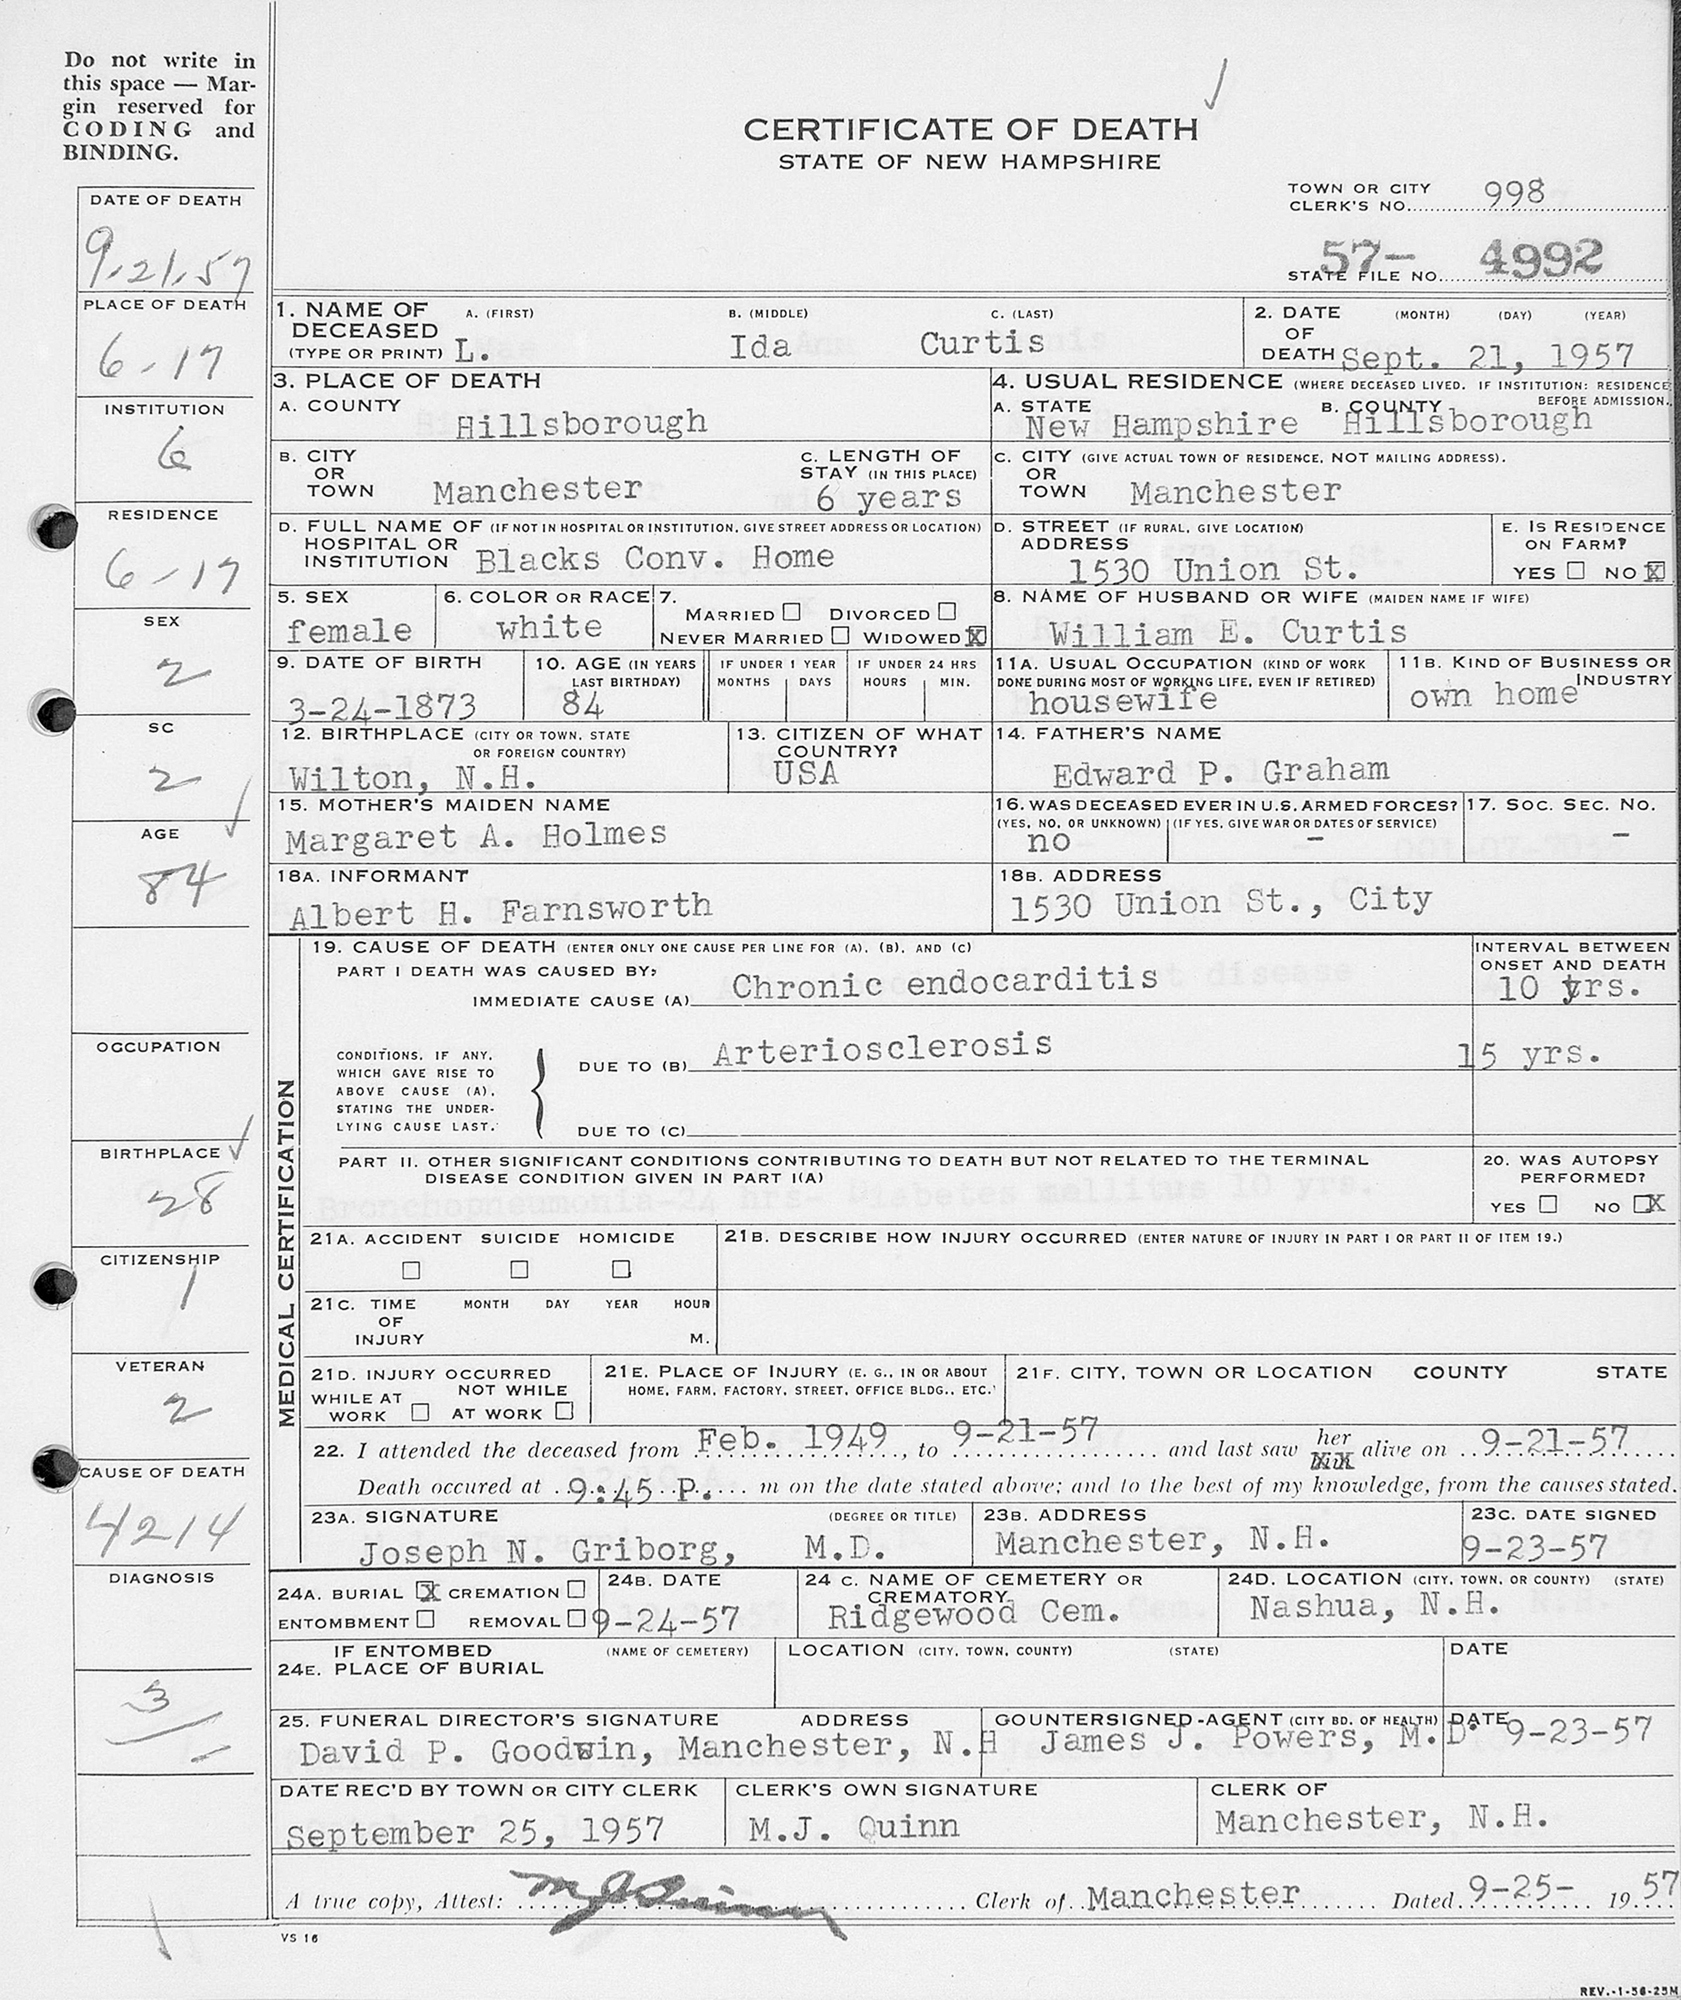 Do not write in
this space — Mar-
gin reserved for
CODING and
BINDING.
CERTIFICATE OF DEATH
STATE OF NEW HAMPSHIRE
TOWN OR CITY
CLERK'S NO. 998
57- 4992
STATE FILE NO.
DATE OF DEATH
9.21.57
PLACE OF DEATH
6-17
INSTITUTION
6
RESIDENCE
6-17
SEX
2
SC
2
AGE
84
OCCUPATION
BIRTHPLACE
28
CITIZENSHIP
1
VETERAN
2
CAUSE OF DEATH
4214
DIAGNOSIS
3
1. NAME OF DECEASED (TYPE OR PRINT) A. (FIRST) B. (MIDDLE) C. (LAST)
L. Ida Curtis
2. DATE OF DEATH (MONTH) (DAY) (YEAR)
Sept. 21, 1957
3. PLACE OF DEATH
A. COUNTY
Hillsborough
4. USUAL RESIDENCE (WHERE DECEASED LIVED. IF INSTITUTION: RESIDENCE BEFORE ADMISSION.
A. STATE B. COUNTY
New Hampshire Hillsborough
B. CITY OR TOWN Manchester
C. LENGTH OF STAY (IN THIS PLACE)
6 years
C. CITY (GIVE ACTUAL TOWN OF RESIDENCE, NOT MAILING ADDRESS).
OR TOWN Manchester
D. FULL NAME OF (IF NOT IN HOSPITAL OR INSTITUTION, GIVE STREET ADDRESS OR LOCATION)
HOSPITAL OR INSTITUTION Blacks Conv. Home
D. STREET (IF RURAL, GIVE LOCATION)
ADDRESS
1530 Union St.
E. IS RESIDENCE ON FARM?
YES NO X
5. SEX
female
6. COLOR OR RACE
white
7. MARRIED DIVORCED
NEVER MARRIED WIDOWED X
8. NAME OF HUSBAND OR WIFE (MAIDEN NAME IF WIFE)
William E. Curtis
9. DATE OF BIRTH
3-24-1873
10. AGE (IN YEARS LAST BIRTHDAY)
84
IF UNDER 1 YEAR
MONTHS DAYS
IF UNDER 24 HRS
HOURS MIN.
11A. USUAL OCCUPATION (KIND OF WORK DONE DURING MOST OF WORKING LIFE, EVEN IF RETIRED)
housewife
11B. KIND OF BUSINESS OR INDUSTRY
own home
12. BIRTHPLACE (CITY OR TOWN, STATE OR FOREIGN COUNTRY)
Wilton, N.H.
13. CITIZEN OF WHAT COUNTRY?
USA
14. FATHER'S NAME
Edward P. Graham
15. MOTHER'S MAIDEN NAME
Margaret A. Holmes
16. WAS DECEASED EVER IN U.S. ARMED FORCES?
(YES, NO, OR UNKNOWN) (IF YES, GIVE WAR OR DATES OF SERVICE)
no -
17. SOC. SEC. NO.
-
18A. INFORMANT
Albert H. Farnsworth
18B. ADDRESS
1530 Union St., City
MEDICAL CERTIFICATION
19. CAUSE OF DEATH (ENTER ONLY ONE CAUSE PER LINE FOR (A), (B), AND (C)
PART I DEATH WAS CAUSED BY:
IMMEDIATE CAUSE (A) Chronic endocarditis
INTERVAL BETWEEN ONSET AND DEATH
10 yrs.
CONDITIONS, IF ANY,
WHICH GAVE RISE TO
ABOVE CAUSE (A),
STATING THE UNDER-
LYING CAUSE LAST.
DUE TO (B) Arteriosclerosis 15 yrs.
DUE TO (C)
PART II. OTHER SIGNIFICANT CONDITIONS CONTRIBUTING TO DEATH BUT NOT RELATED TO THE TERMINAL
DISEASE CONDITION GIVEN IN PART I(A)
20. WAS AUTOPSY PERFORMED?
YES NO X
21A. ACCIDENT SUICIDE HOMICIDE
21B. DESCRIBE HOW INJURY OCCURRED (ENTER NATURE OF INJURY IN PART I OR PART II OF ITEM 19.)
21C. TIME OF INJURY MONTH DAY YEAR HOUR M.
21D. INJURY OCCURRED
WHILE AT WORK NOT WHILE AT WORK
21E. PLACE OF INJURY (E. G., IN OR ABOUT HOME, FARM, FACTORY, STREET, OFFICE BLDG., ETC.
21F. CITY, TOWN OR LOCATION COUNTY STATE
22. I attended the deceased from Feb. 1949, to 9-21-57 and last saw her alive on 9-21-57
Death occured at 9:45 P. m on the date stated above; and to the best of my knowledge, from the causes stated.
23A. SIGNATURE (DEGREE OR TITLE)
Joseph N. Griborg, M.D.
23B. ADDRESS
Manchester, N.H.
23C. DATE SIGNED
9-23-57
24A. BURIAL X CREMATION
ENTOMBMENT REMOVAL
24B. DATE
9-24-57
24 C. NAME OF CEMETERY OR CREMATORY
Ridgewood Cem.
24D. LOCATION (CITY, TOWN, OR COUNTY) (STATE)
Nashua, N.H.
IF ENTOMBED (NAME OF CEMETERY) LOCATION (CITY, TOWN, COUNTY) (STATE) DATE
24E. PLACE OF BURIAL
25. FUNERAL DIRECTOR'S SIGNATURE ADDRESS
David P. Goodwin, Manchester, N.H
COUNTERSIGNED-AGENT (CITY BD. OF HEALTH) DATE
James J. Powers, M.D. 9-23-57
DATE REC'D BY TOWN OR CITY CLERK
September 25, 1957
CLERK'S OWN SIGNATURE
M.J. Quinn
CLERK OF
Manchester, N.H.
A true copy, Attest: M J Quinn Clerk of Manchester Dated 9-25- 1957
VS 16
REV.-1-56-25M